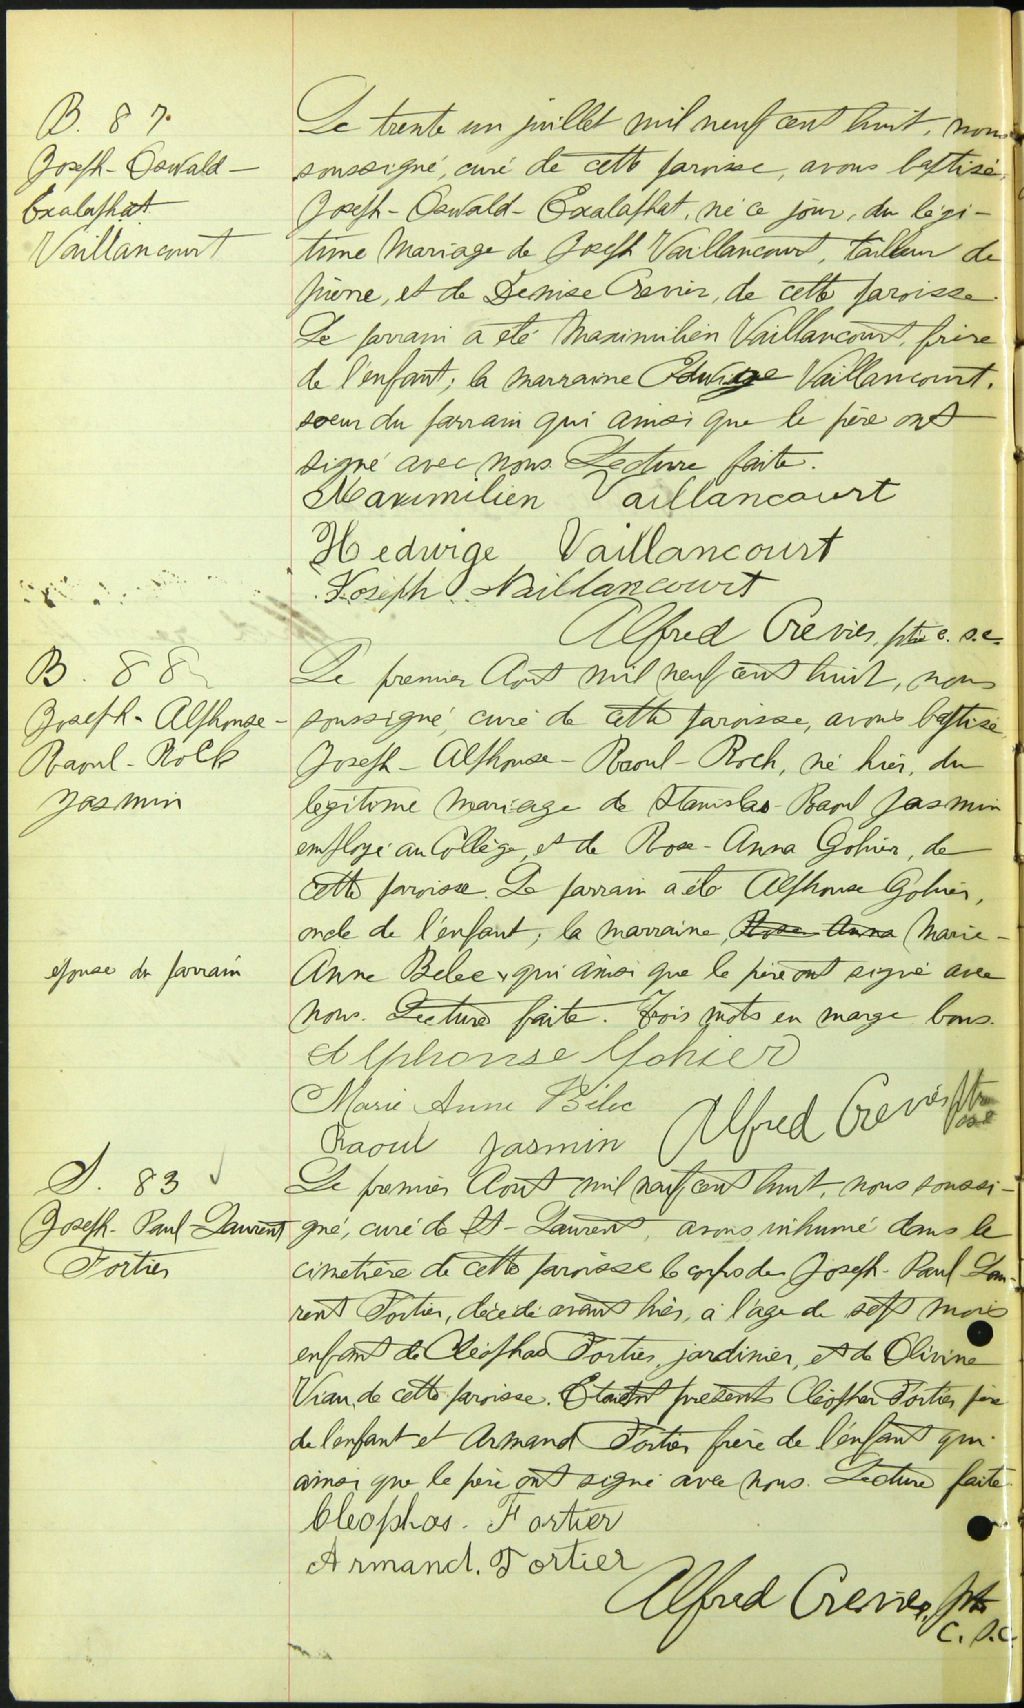 B. 87.
Joseph-Oswald-
Exalaphat
Vaillancourt
Le trente un juillet mil neuf cent huit, nous
soussigné, curé de cette paroisse, avons baptisé,
Joseph-Oswald-Exalaphat, né ce jour, du légi-
time Mariage de Joseph Vaillancourt, tailleur de
pierre, et de Denise Crevier, de cette paroisse.
Le parrain a été Maximilien Vaillancourt, frère
de l'enfant; la marraine Edwidge Vaillancourt,
soeur du parrain qui ainsi que le père ont
signé avec nous. Lecture faite.
Maximilien Vaillancourt
Hedwige Vaillancourt
Joseph Vaillancourt
Alfred Crevier, ptre c.s.c.
B. 88
Joseph-Alphonse-
Raoul-Roch
Jasmin
Le premier Aout mil neuf cent huit, nous
soussigné, curé de cette paroisse, avons baptisé
Joseph-Alphonse-Raoul-Roch, né hier, du
légitime mariage de Stanislas-Raoul Jasmin
employé au Collège, et de Rose-Anna Gohier, de
cette paroisse. Le parrain a été Alphonse Gohier,
oncle de l'enfant; la marraine, Rose Anna Marie-
epouse du parrain
Anne Bélec x qui ainsi que le père ont signé avec
nous. Lecture faite. Trois mots en marge bons.
Alphonse Gohier
Marie Anne Bélec
Alfred Crevier ptre
csc
Raoul Jasmin
S. 83
Joseph-Paul-Laurent
Fortier
Le premier Aout mil neuf cent huit, nous soussi-
gné, curé de St-Laurent, avons inhumé dans le
cimetière de cette paroisse le corps de Joseph-Paul Lau-
rent Fortier, décédé avant hier, à l'age de sept mois
enfant de Cléophas Fortier, jardinier, et de Olivine
Viau, de cette paroisse. Etaient présents Cléophas Fortier père
de l'enfant et Armand Fortier frère de l'enfant qui
ainsi que le père ont signé avec nous. Lecture faite
Cleophas. Fortier
Armand. Fortier
Alfred Crevier, ptre
c.s.c